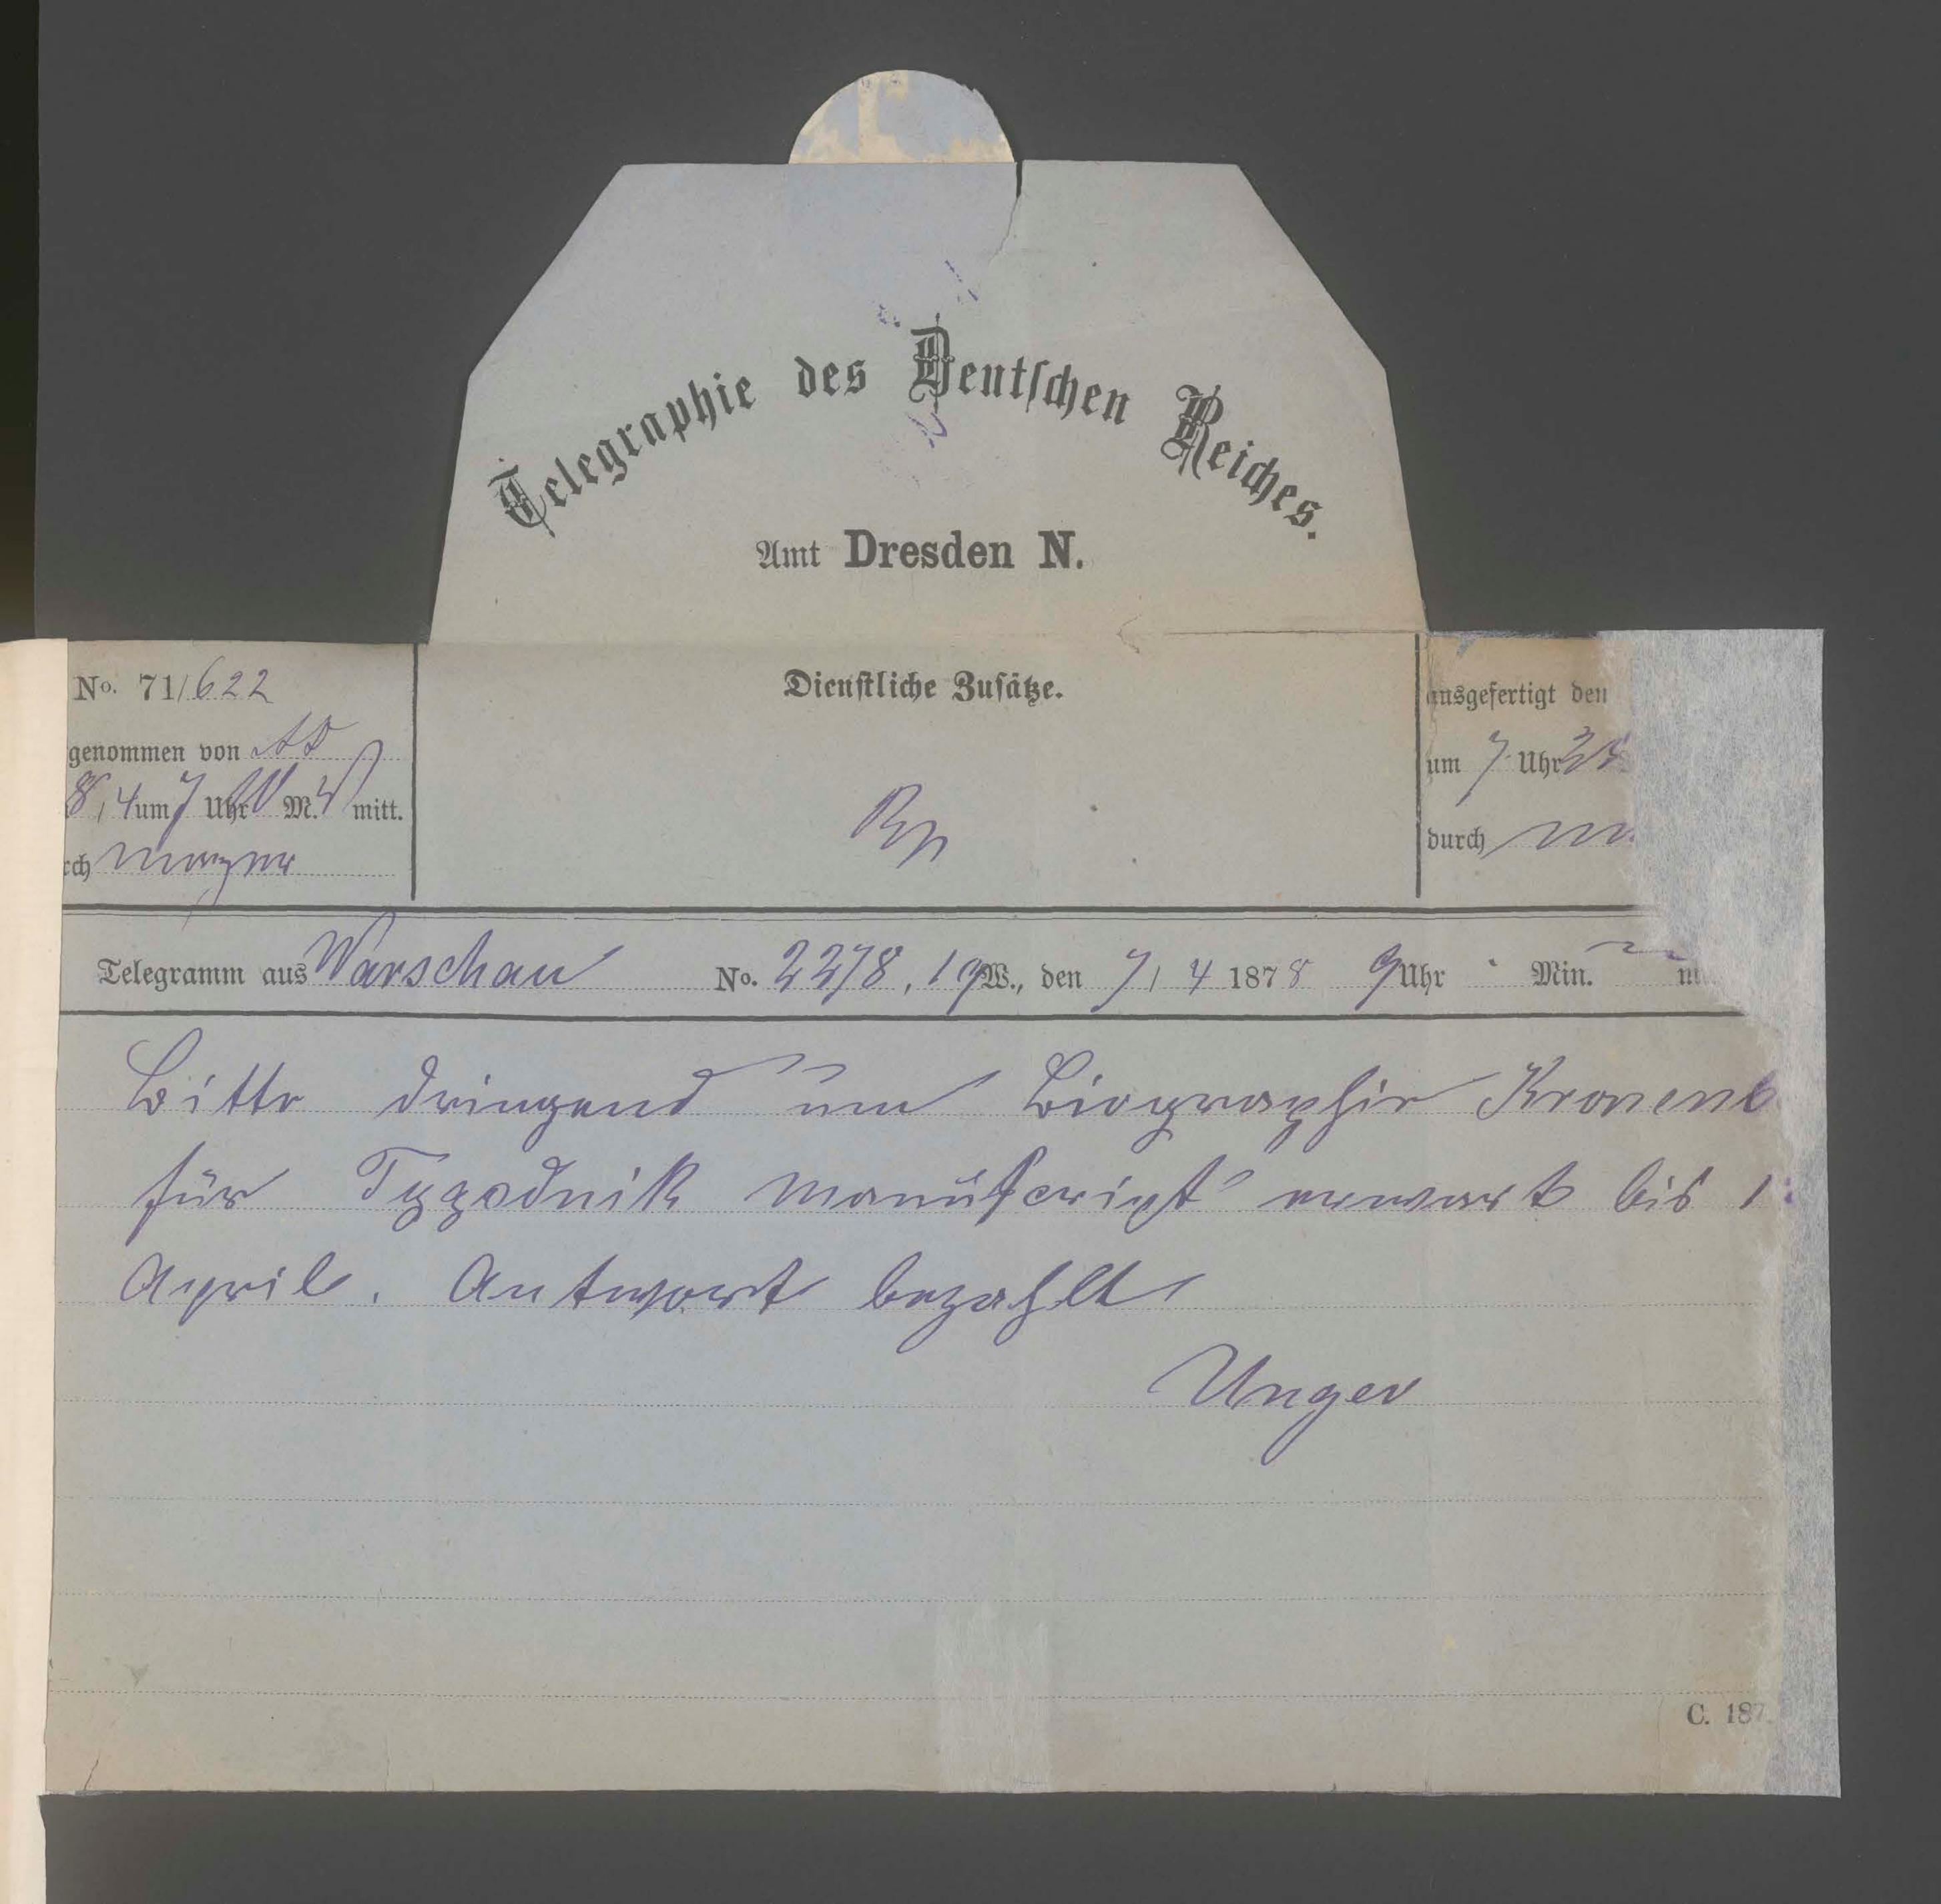 Telegraphie des Deutschen Reiches.
Amt Dresden N.
No. 71/622
genommen von
8/4 um 7 Uhr M. mitt.
rch
Dienstliche Zusätze.
Rp
ausgefertigt den
um 7 Uhr
durch
Telegramm aus Warschau No. 2278, 19 W., den 7/4 1878 9 Uhr - Min.
Bitte dringend um Biographie Kronenb
für Tygodnik Manuscript erwarte bis 1
April. Antwort bezahlt
Unger
C. 187.